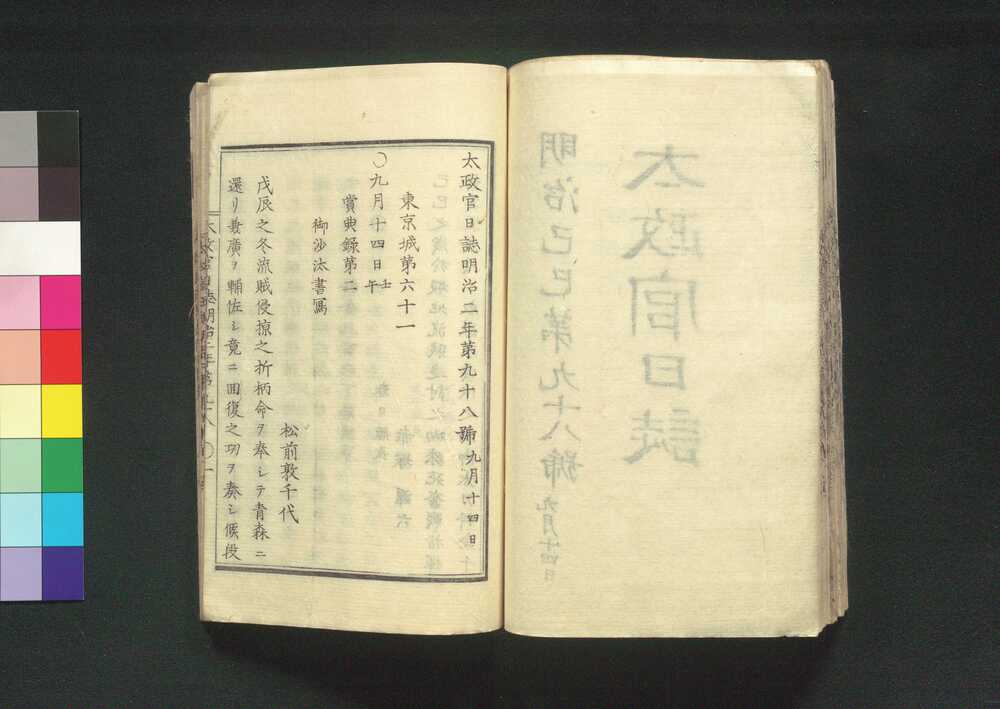 太政官日誌
明治己巳第九十八號 九月十四日
太政官日誌明治二年第九十八號 九月十四日
東京城第六十一
〇九月十四日壬午
賞典録第二
御沙汰書寫
松前敦千代
戊辰之冬流賊侵掠之折柄命ヲ奉シテ青森ニ
還リ兼廣ヲ輔佐シ竟ニ回復之功ヲ奏シ候段